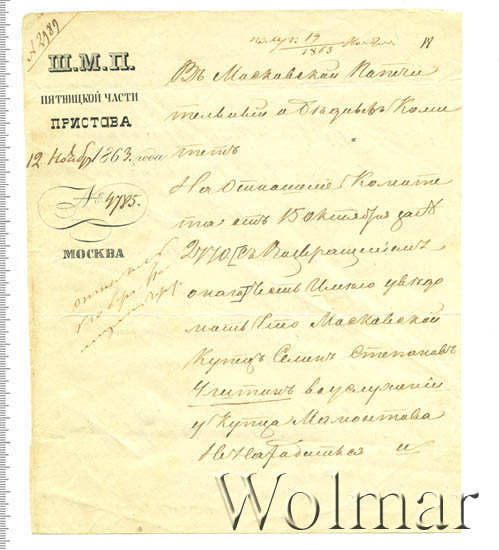 № 2989
Ш.М.П.
ПЯТНИЦКОЙ ЧАСТИ
ПРИСТАВА
12 Ноябр 1863. года
№ 4785.
МОСКВА
получ 19 Ноября
1863
Въ Московской Попечи
тельный о бѣдныхъ Коми
тетъ
На отношение Комите
та отъ 15 Октября за №
2770 съ Возвращениемъ
имею уведо
мить что Московской
Купецъ Семен Степановъ
в услужении
у Купца Мамонтова
и
Wolmar